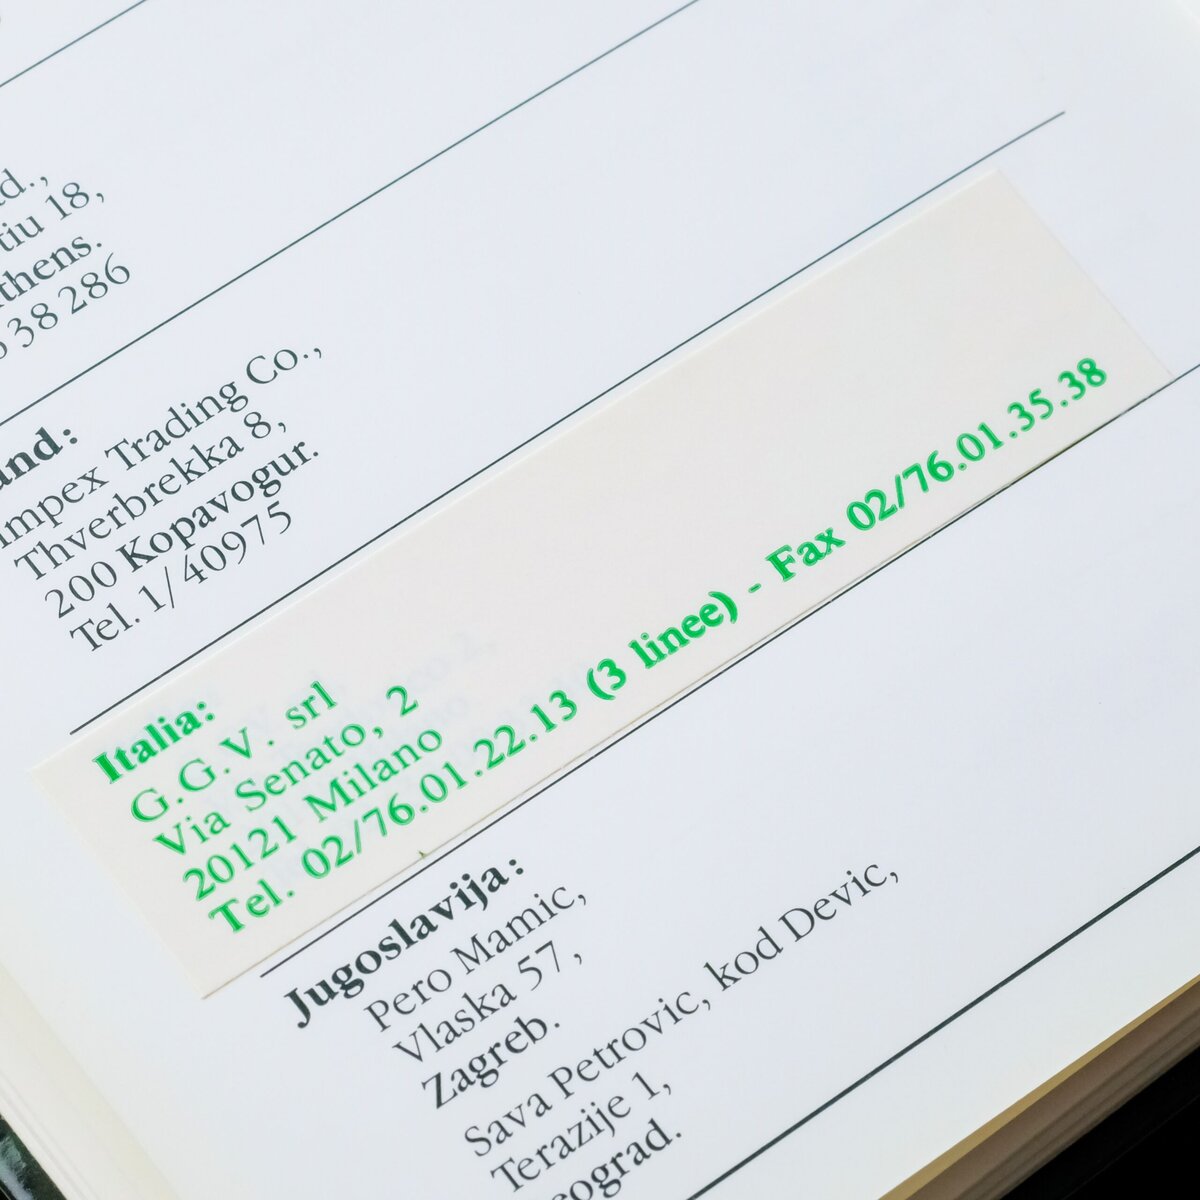 tiu 18,
38 286
Impex Trading Co.,
Thverbrekka 8,
200 Kopavogur.
Tel. 1/40975
Italia:
G.G.V. srl
Via Senato, 2
20121 Milano
Tel. 02/76.01.22.13 (3 linee) - Fax 02/76.01.35.38
Jugoslavija:
Pero Mamic,
Vlaska 57,
Zagreb.
Sava Petrovic, kod Devic,
Terazije 1,